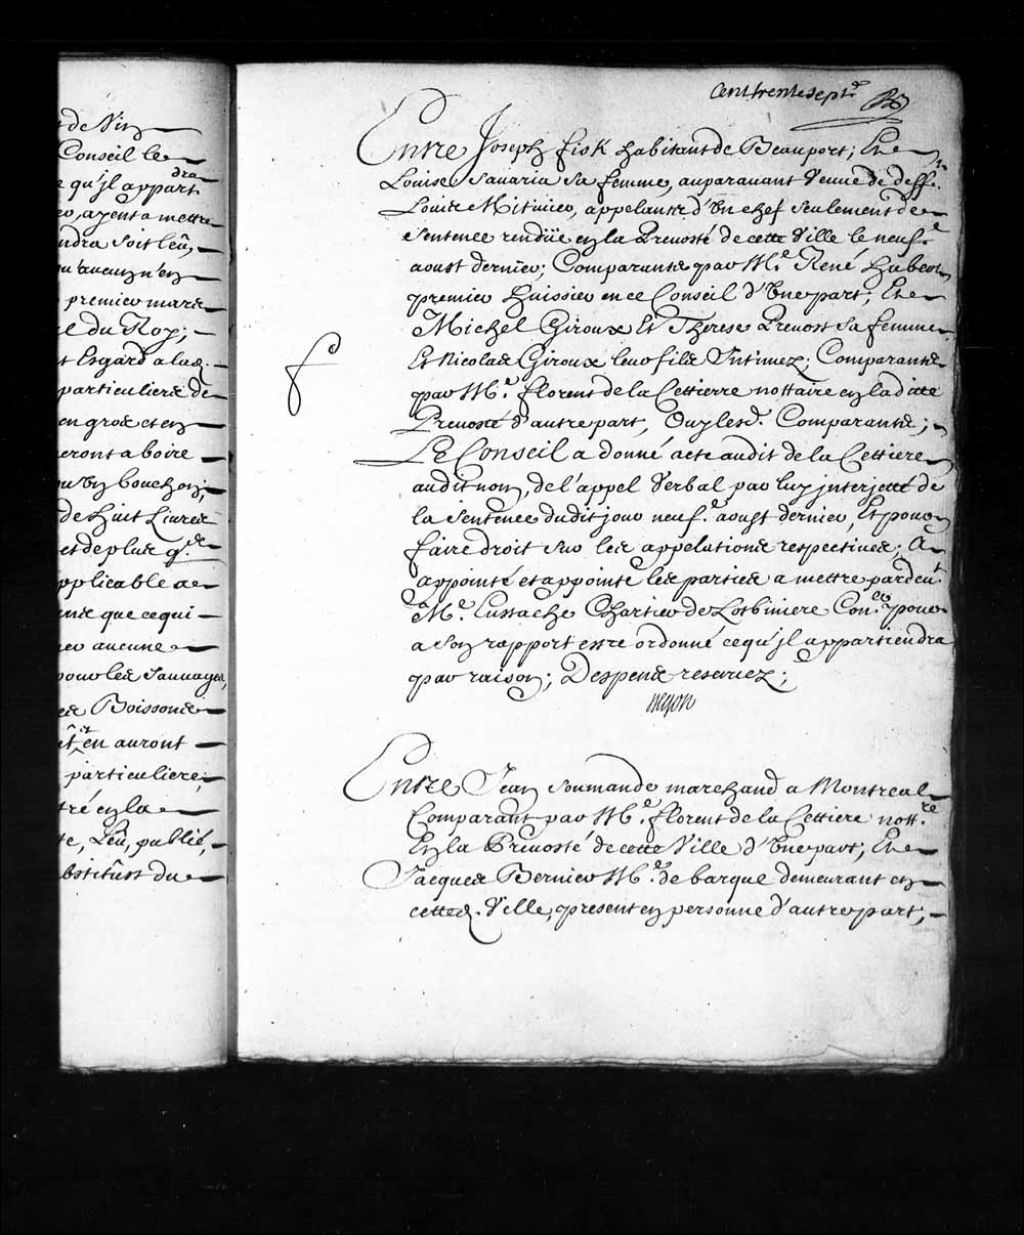 de Vin
Conseil le
qu'il appart
dra
ayent a mettre
ndra soit leû,
qu'aucun n'en
premier mars
du Roy;
Esgard a lad.
particuliers de
en gros et en
eront a boire
bouchon;
de huit Livres
et de plus g.de
applicable a
que ce qui
aucune
pour les Sauvages,
Boissons
en auront
particuliere;
tré en la
te, Leu, publié,
bstitût du
Cent trente sept.e
Entre Joseph fisk habitant de Beauport; Et
Louise Savaria sa femme, auparavant Veuve de deff.n
Louis Mitivier, appelants d'Un chef seulement de
Sentence rendüe en la Prevosté de cette Ville le neuf.e
aoust dernier; Comparants par M.e René hubert
premier huissier en ce Conseil d'Une part; Et
Michel Giroux Et Therese Prevost sa femme
Et Nicolas Giroux leur fils Intimez; Comparants
par M.e florent de la Cettierre nottaire en laditte
Prevosté d'autre part, Ouy lesd. Comparants;
LE Conseil a donné acte audit de la Cettiere
audit nom, de l'appel Verbal par luy interjetté de
la Sentence dudit jour neuf.e aoust dernier, Et pour
faire droit sur les appelations respectives; A
appointé et appointe les parties a mettre pardev.t
M.e Eustache Chartier de Lotbiniere Con.er pour
a son rapport estre ordonné ce qu'il appartiendra
par raison; Despens reservez;
Entre Jean Soumande marchand a Montreal
Comparant par M.e florent de la Cettiere nott.re
En la Prevosté de cette Ville d'Une part; Et
Jacques Bernier M.e de barque demeurant en
cetted. Ville, present en personne d'autre part;